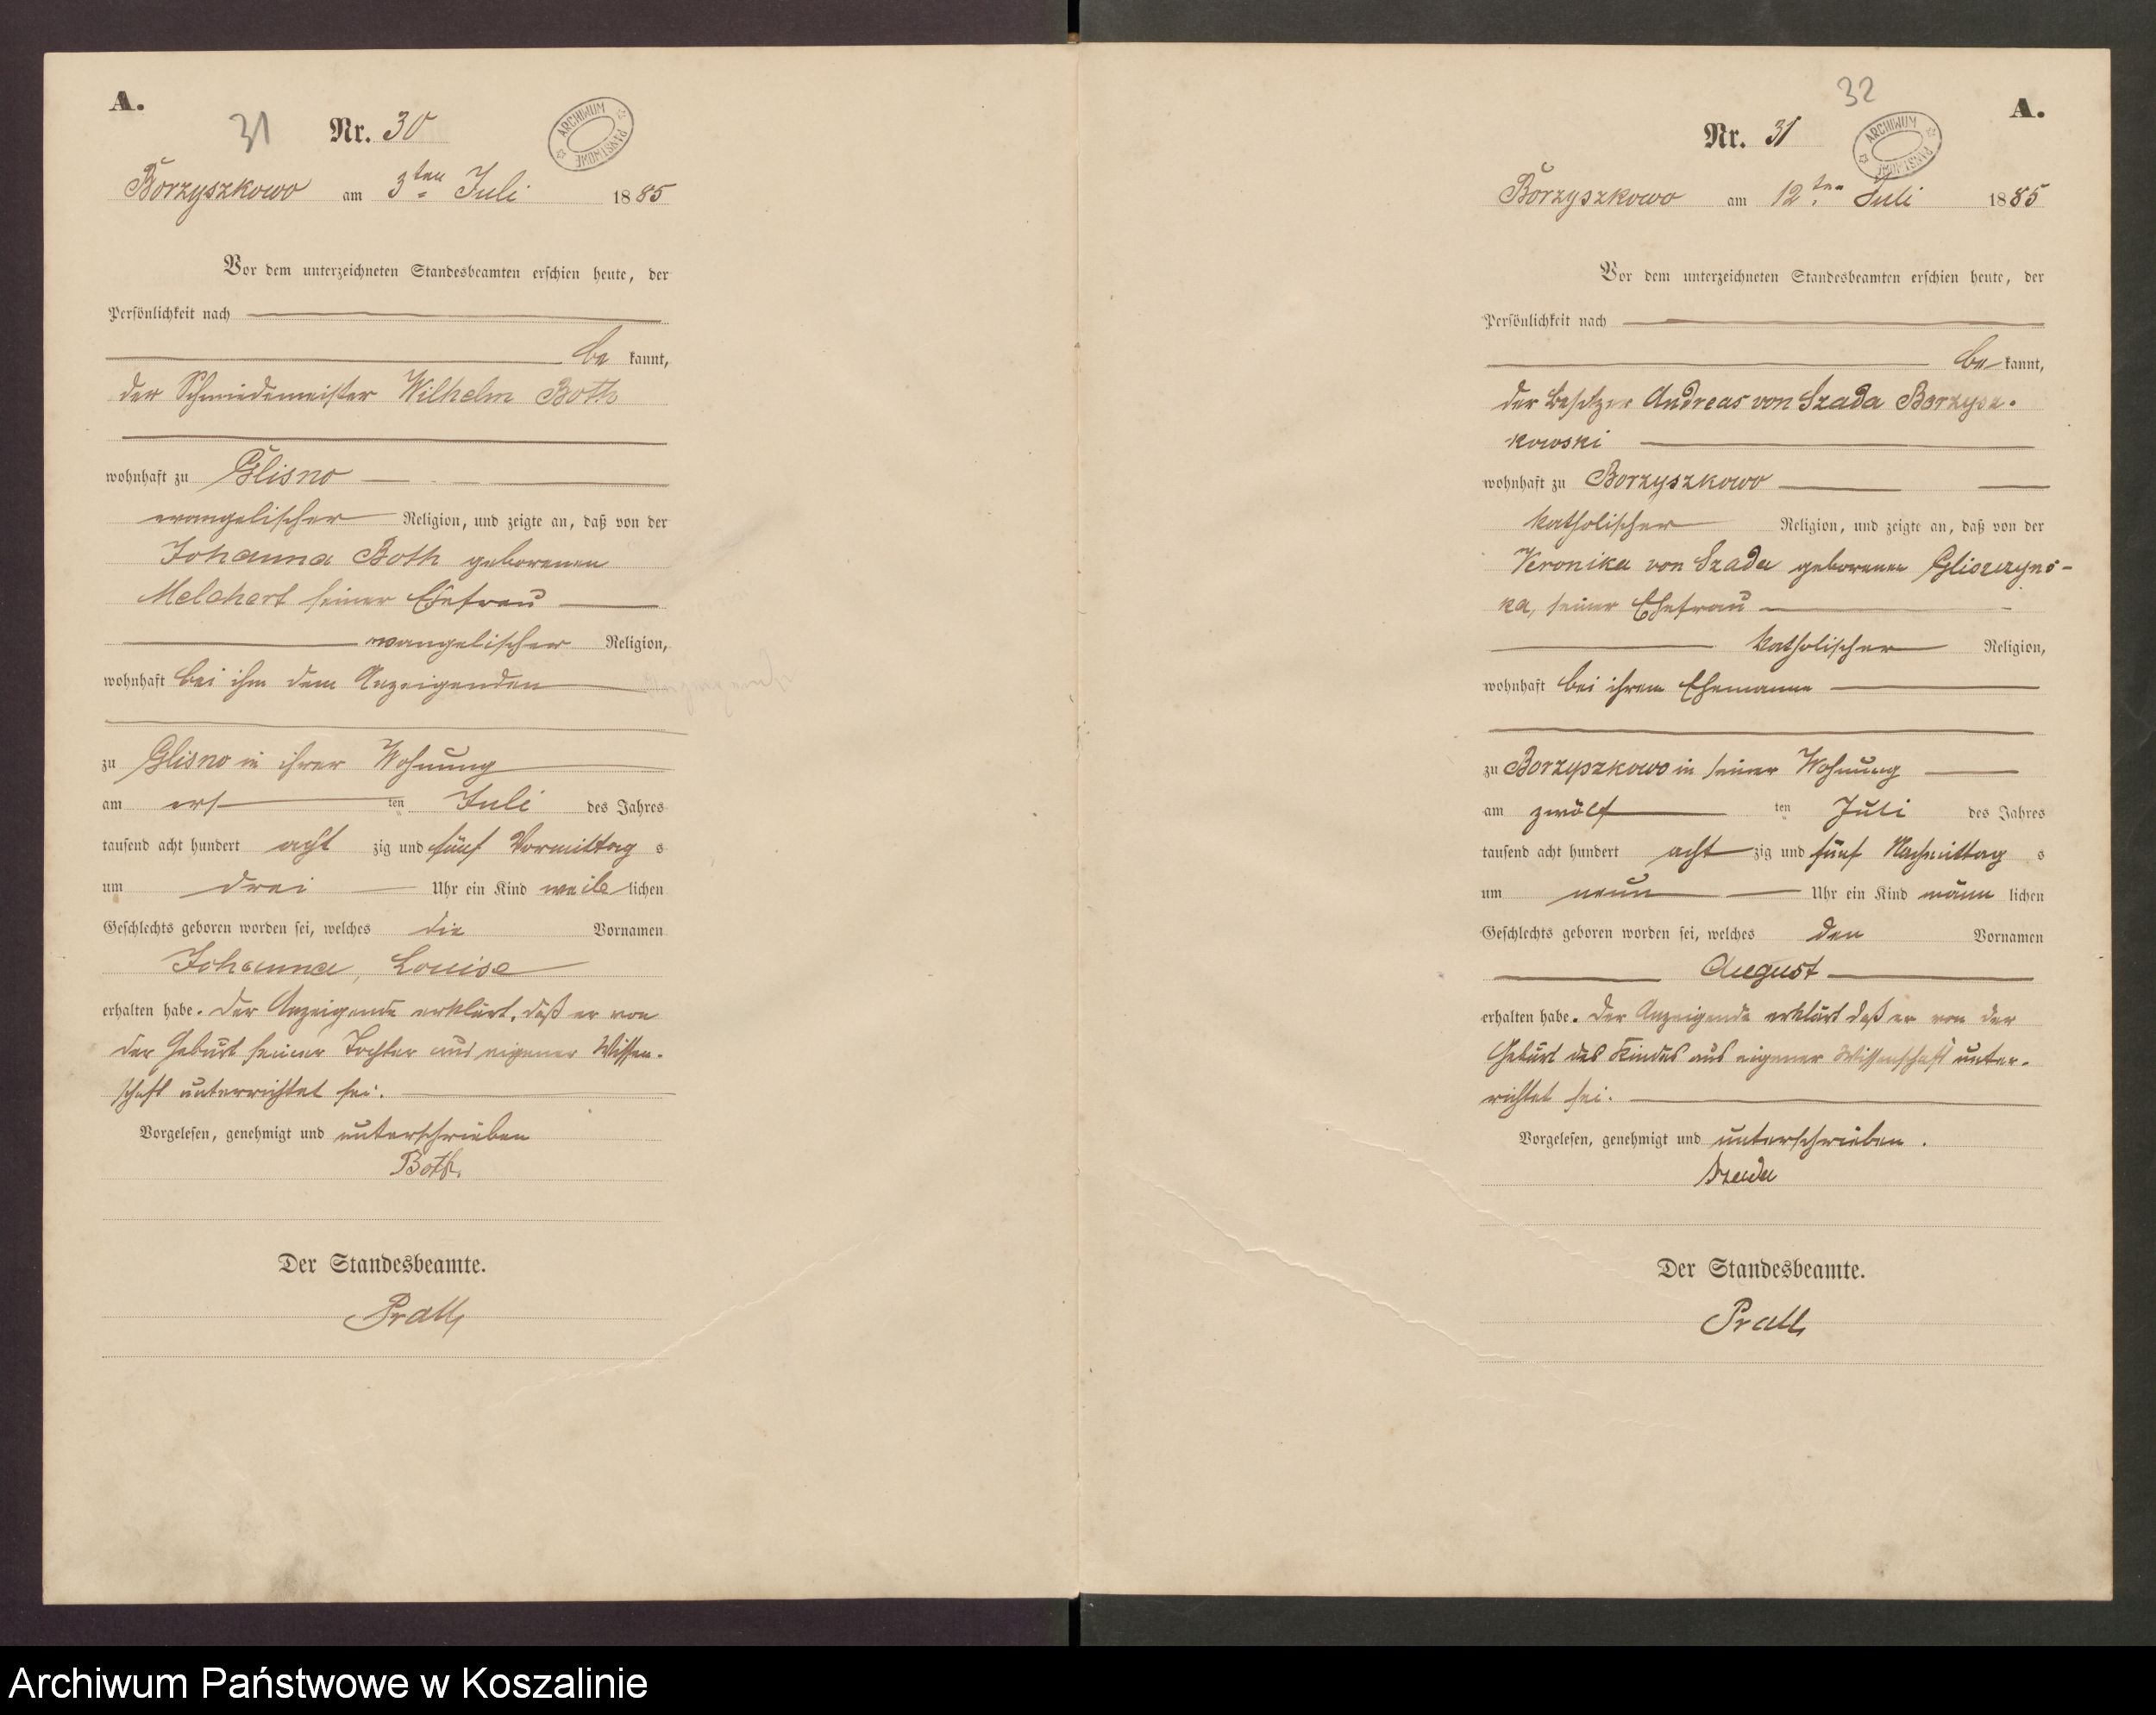 A.
31 Nr. 30
ARCHIWUM PAŃSTWOWE
Borzyszkowo am 3ten Juli 1885
Vor dem unterzeichneten Standesbeamten erschien heute, der
Persönlichkeit nach
be kannt,
der Schmiedemeister Wilhelm Both
wohnhaft zu Glisno
evangelischer Religion, und zeigte an, daß von der
Johanna Both geborenen
Melchert seiner Ehefrau
evangelischer Religion,
wohnhaft bei ihm dem Anzeigenden
zu Glisno in ihrer Wohnung
am ers ten Juli des Jahres
tausend acht hundert acht zig und fünf Vormittag s
um drei Uhr ein Kind weib lichen
Geschlechts geboren worden sei, welches die Vornamen
Johanna, Louise
erhalten habe. Der Anzeigende erklärt, daß er von
der Geburt seiner Tochter aus eigener Wissen-
schaft unterrichtet sei.
Vorgelesen, genehmigt und unterschrieben
Both.
Der Standesbeamte.
Prall
32
A.
Nr. 31
ARCHIWUM PAŃSTWOWE
Borzyszkowo am 12ten Juli 1885
Vor dem unterzeichneten Standesbeamten erschien heute, der
Persönlichkeit nach
be kannt,
der Besitzer Andreas von Szada Borzysz-
kowski
wohnhaft zu Borzyszkowo
katholischer Religion, und zeigte an, daß von der
Veronika von Szada geborenen Gliszczyns-
ka, seiner Ehefrau
katholischer Religion,
wohnhaft bei ihrem Ehemanne
zu Borzyszkowo in seiner Wohnung
am zwölf ten Juli des Jahres
tausend acht hundert acht zig und fünf Nachmittag s
um neun Uhr ein Kind männ lichen
Geschlechts geboren worden sei, welches den Vornamen
August
erhalten habe. Der Anzeigende erklärt daß er von der
Geburt des Kindes aus eigener Wissenschaft unter-
richtet sei.
Vorgelesen, genehmigt und unterschrieben.
Szada
Der Standesbeamte.
Prall
Archiwum Państwowe w Koszalinie